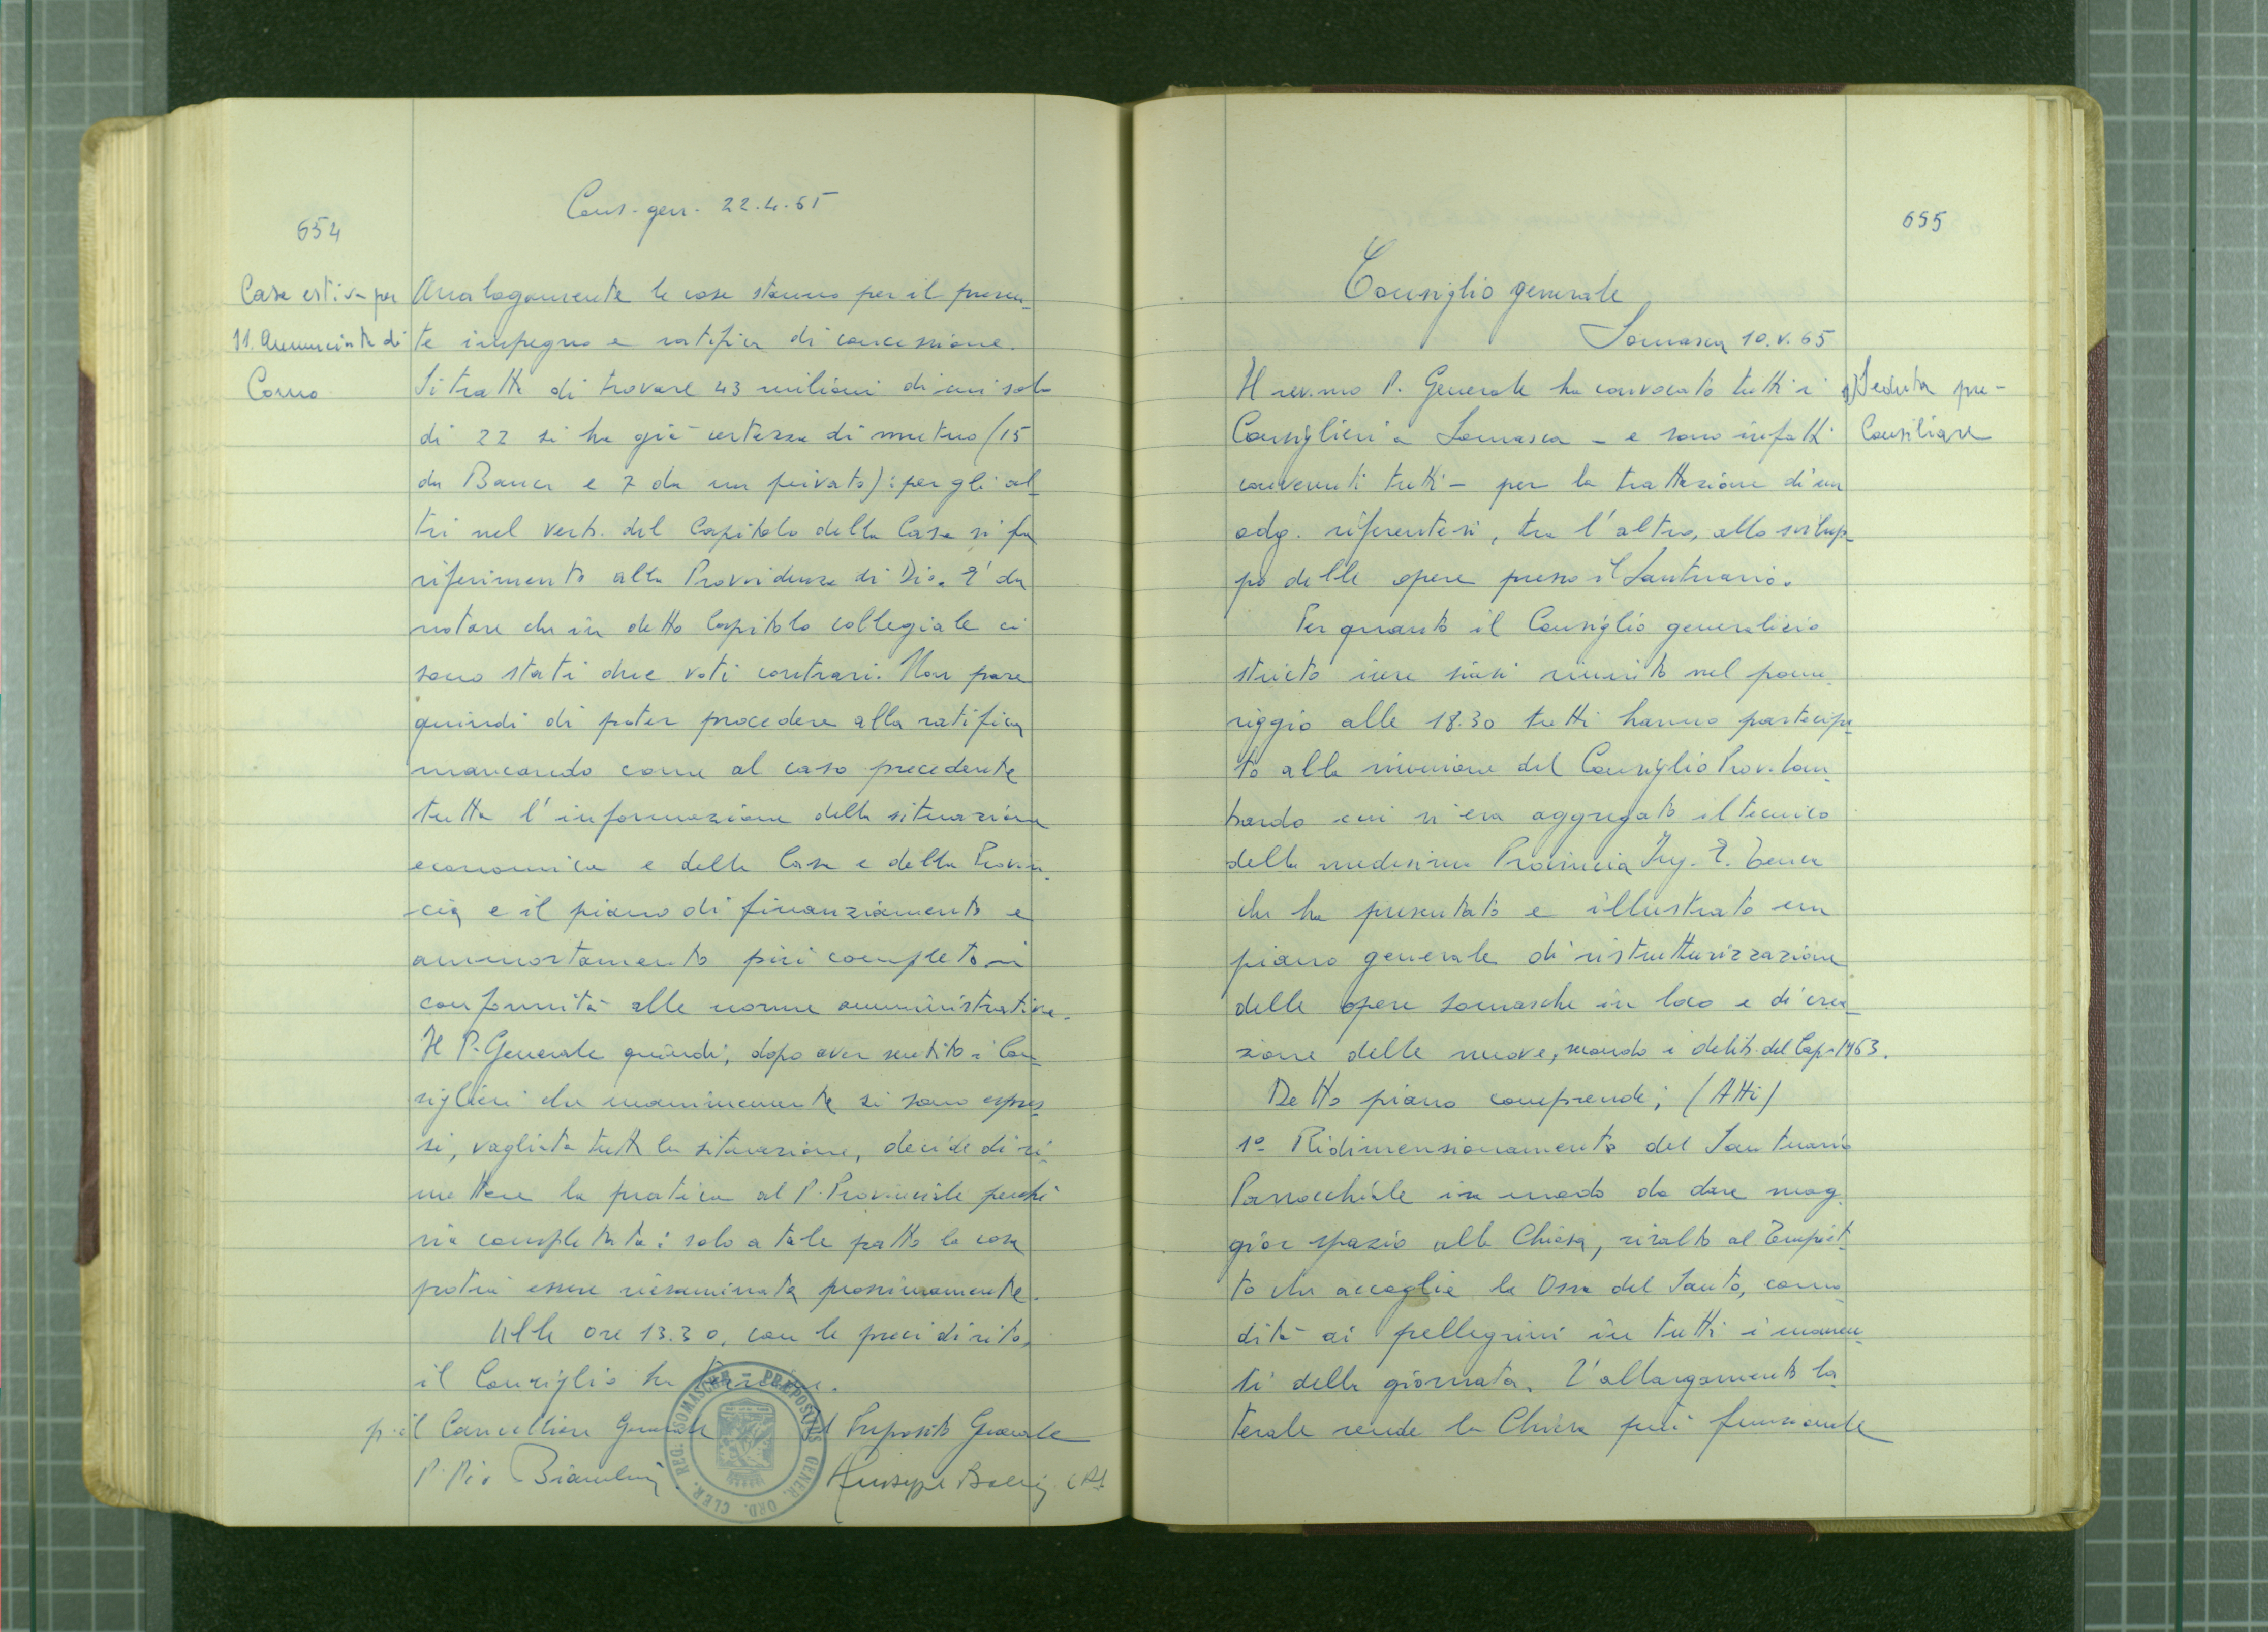 654
Cons. gen. 22.4.65
Casa estiva per
11. Annunciata di
Como
Analogamente le cose stanno per il presen-
te impegno e ratifica di concessione.
Si tratta di trovare 43 milioni di cui solo
di 22 si ha già certezza di mutuo (15
da Banca e 7 da un privato): per gli al-
tri nel verb. del Capitolo della Casa si fa
riferimento alla Provvidenza di Dio. E' da
notare che in detto Capitolo collegiale ci
sono stati due voti contrari. Non pare
quindi di poter procedere alla ratifica
mancando come al caso precedente
tutta l'informazione della situazione
economica e della Casa e della Provin-
cia e il piano di finanziamento e
ammortamento più completo in
conformità alle norme amministrative.
Il P. Generale quindi, dopo aver sentito i Con-
siglieri che unanimemente si sono espres-
si, vagliata tutta la situazione, decide di ri-
mettere la pratica al P. Provinciale perché
sia completata: solo a tale patto la cosa
potrà essere riesaminata prossimamente.
Alle ore 13.30, con le preci di rito,
il Consiglio ha termine.
p. il Cancelliere Generale
Il Preposito Generale
P. Pio Bianchini
Giuseppe Boeris crs
PRÆPOSITUS GENER. ORD. CLER. REG. SOMASCHÆ
655
Consiglio generale
Somasca 10.V.65
1) Seduta pre-
consiliare
Il rev.mo P. Generale ha convocato tutti i
Consiglieri a Somasca - e sono infatti
convenuti tutti - per la trattazione di un
odg. riferentesi, tra l'altro, allo svilup-
po delle opere presso il Santuario.
Per quanto il Consiglio generalizio
stricto iure siasi riunito nel pome-
riggio alle 18.30 tutti hanno partecipa-
to alla riunione del Consiglio Prov. Lom-
bardo cui si era aggregato il tecnico
della medesima Provincia Ing. E. Tenca
che ha presentato e illustrato un
piano generale di ristrutturizzazione
delle opere somasche in loco e di crea-
zione delle nuove, secondo i delib. del Cap. 1963.
Detto piano comprende: (Atti)
1º Ridimensionamento del Santuario
Parrocchiale in modo da dare mag-
gior spazio alla Chiesa, risalto al Tempiet-
to che accoglie le Ossa del Santo, como-
dità ai pellegrini in tutti i momen-
ti della giornata. L'allargamento la-
terale rende la Chiesa più funzionale